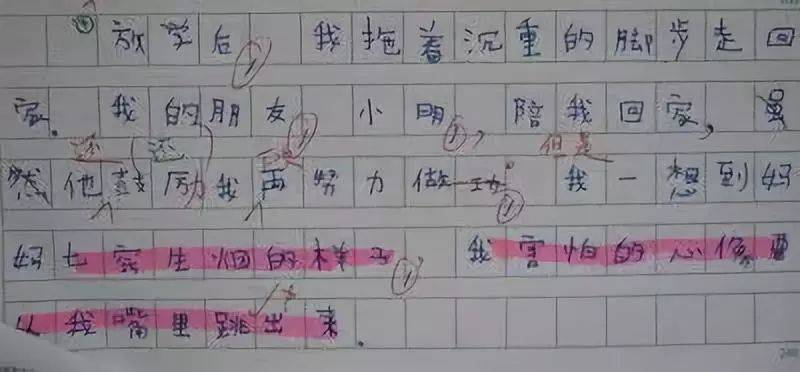 放学后 我拖着沉重的脚步走回
家.我的朋友 小明, 陪我回家,虽
还 还 但是
然他鼓励我再努力做 我一想到妈
妈七窍生烟的样子 我害怕的心像要
从我嘴里跳出来.